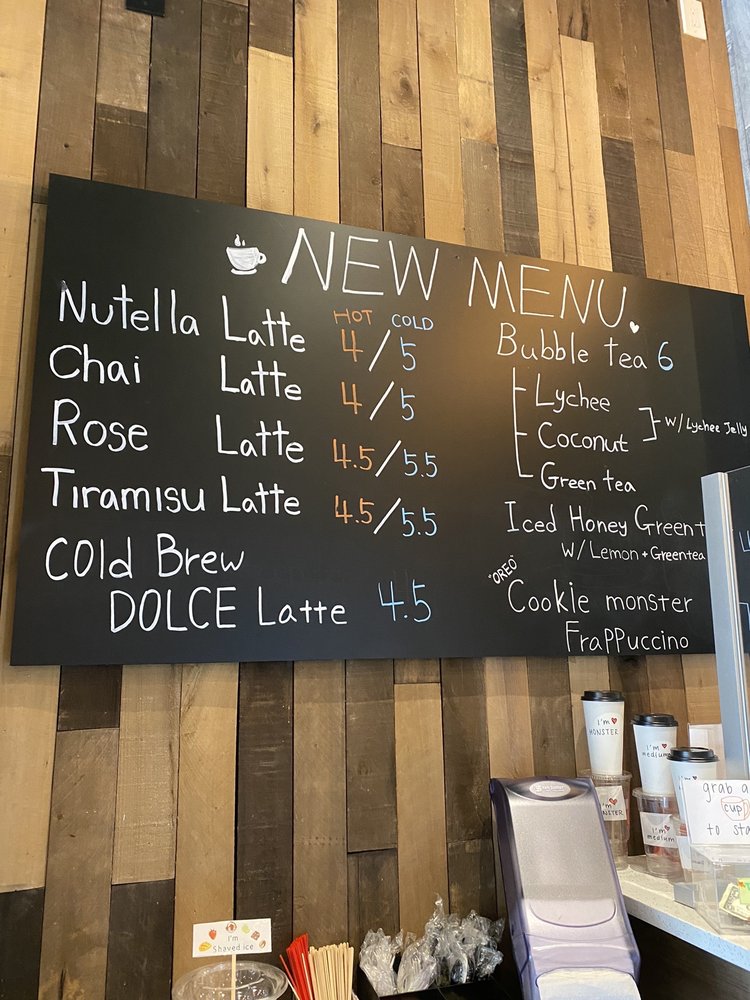 NEW MENU
HOT COLD
Nutella Latte 4/5
Chai Latte 4/5
Rose Latte 4.5/5.5
Tiramisu Latte 4.5/5.5
Cold Brew
DOLCE Latte 4.5
Bubble tea 6
Lychee
Coconut
W/ Lychee Jelly
Green tea
Iced Honey Green
W/ Lemon + Greentea
"OREO"
Cookie monster
FraPPuccino
I'm
MONSTER
I'm
medium
I'm
medium
grab a
cup
to
I'm
Shaved ice